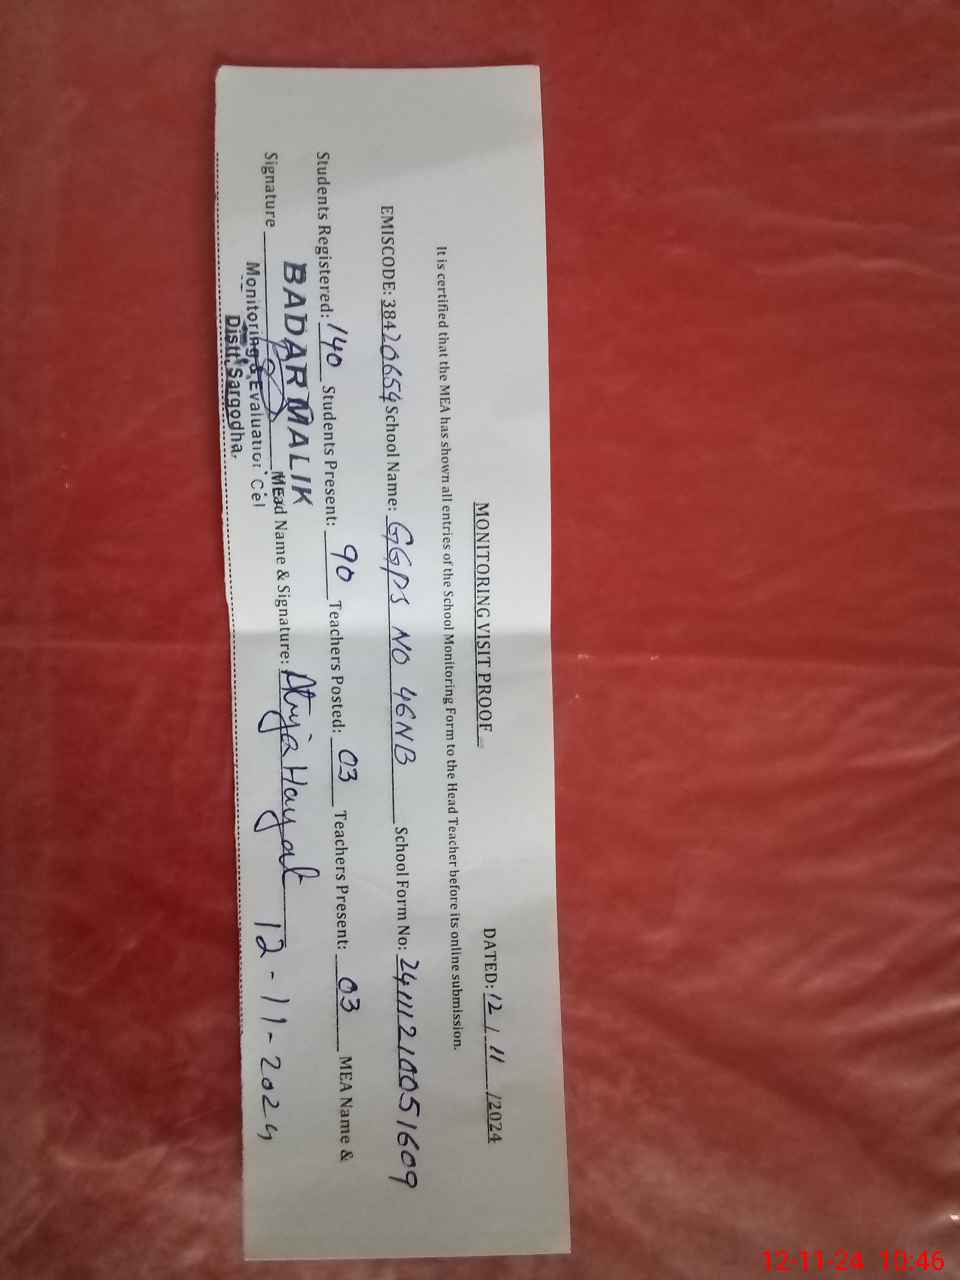 MONITORING VISIT PROOF
DATED: 12 / 11 /2024
It is certified that the MEA has shown all entries of the School Monitoring Form to the Head Teacher before its online submission.
EMISCODE: 38420654 School Name: GGPS NO 46NB School Form No: 24111210051609
Students Registered: 140 Students Present: 90 Teachers Posted: 03 Teachers Present: 03 MEA Name &
BADAR MALIK
Signature Head Name & Signature: Atiya Hayat 12-11-2024
MEA
Monitoring & Evaluation Cel
Distt. Sargodha.
12-11-24 10:46